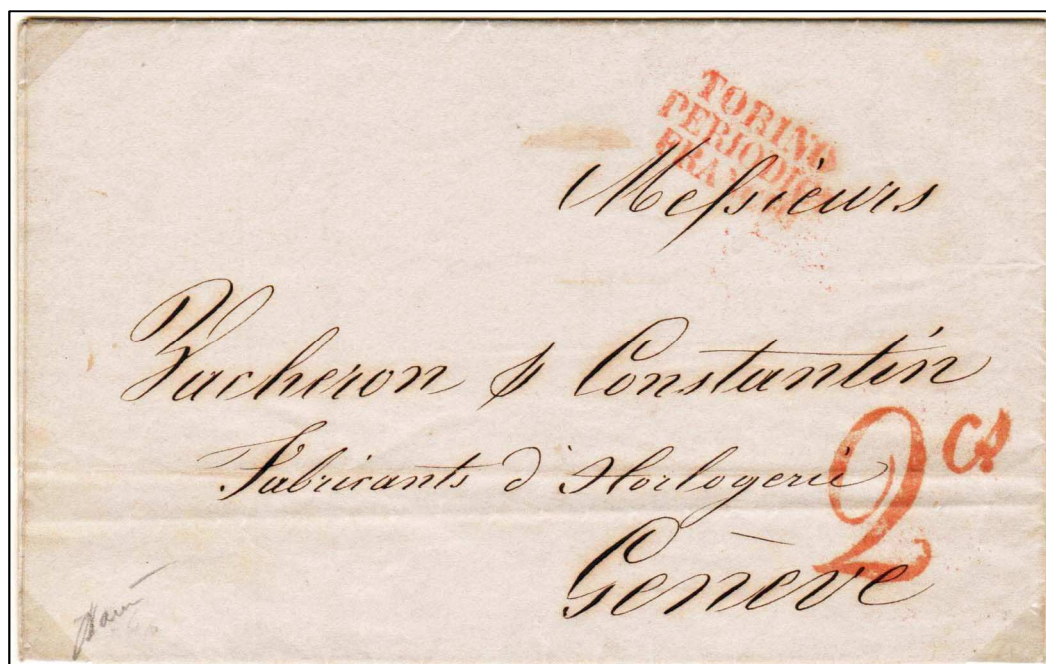 TORINO
PERIODICI
FRANCHI
Messieurs
Vacheron & Constantin
Fabricants d'Horlogerie
2 cs
Genève